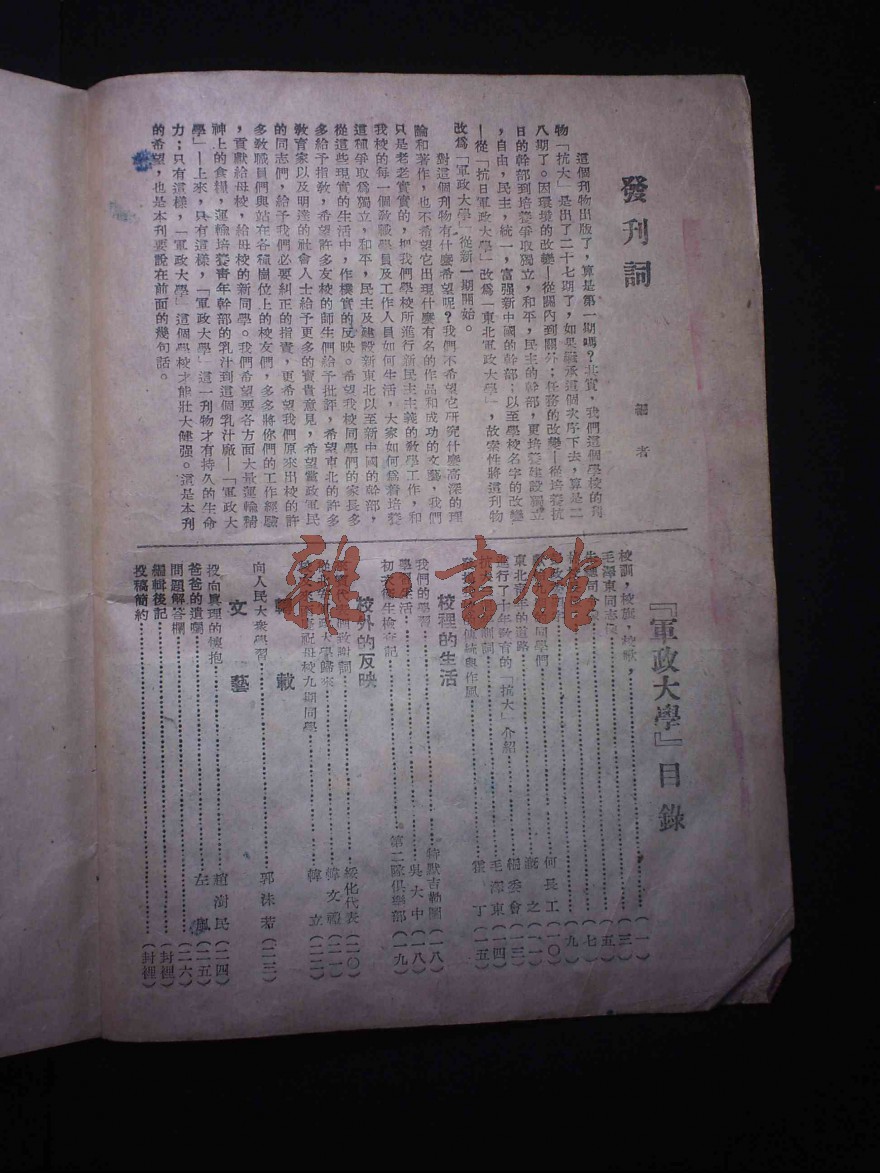 發刊詞
編者
這個刊物出版了，算是第一期嗎？其實，我們這個學校的刊
物「抗大」是出了二十七期了，如果繼承這個次序下去，算是二
八期了。因環境的改變—從關內到關外；任務的改變—從培養抗
日的幹部到培養爭取獨立，和平，民主的幹部，更培養建設獨立
，自由，民主，統一，富强新中國的幹部；以至學校名字的改變
—從「抗日軍政大學」改爲「東北軍政大學」，故索性將這刊物
改爲「軍政大學」從新一期開始。
對這個刊物有什麽希望呢？我們不希望它研究什麽高深的理
論和著作，也不希望它出現什麽有名的作品和成功的文藝，我們
只是老老實實的，把我們學校所進行新民主主義的敎學工作，和
我校的每一個敎職學員及工作人員如何生活，大家如何爲着培養
這種爭取爲獨立，和平，民主及建設新東北以至新中國的幹部，
從這些現實的生活中，作樸實的反映。希望我校同學們的家長多
多給予指敎，希望許多友校的師生們給予批評，希望東北的許多
敎育家以及明達的社會人士給予更多的寶貴意見，希望黨政軍民
的同志們，給予我們必要糾正的指責，更希望我們原來出校的許
多敎職員們與站在各種崗位上的校友們，多多將你們的工作經驗
，貢獻給母校，給母校的新同學。我們希望要各方面大量運輸精
神上的食糧，運輸培養青年幹部的乳汁到這個乳汁廠—「軍政大
學」—上來，只有這樣，「軍政大學」這一刊物才有持久的生命
力；只有這樣，「軍政大學」這個學校才能壯大健强。這是本刊
的希望，也是本刊要說在前面的幾句話。
『軍政大學』目錄
校訓，校旗，校歌，……（一）
毛澤東同志……（三）
朱總司令……（五）
……（七）
……（九）
……同學們……何長工（一〇）
東北青年的道路……漑之
進行了十年敎育的「抗大」介紹……編委會（一三）
抗大……訓詞……毛澤東（一四）
……傳統與作風……裴丁（一五）
校裡的生活
我們的學習……特默吉勒圖（一八）
學習生活……吳大中（一八）
初次衛生檢查記……第二隊俱樂部（一九）
校外的反映
……代表們致謝詞……綏化代表（二〇）
從……大學歸來……韓文禮（二一）
……祝母校九期同學……韓立（二二）
轉載
向人民大衆學習……郭沫若（二三）
文藝
投向眞理的懷抱……趙澍民（二四）
爸爸的遺囑……左風（二五）
問題解答欄……（二六）
編輯後記……（封裡）
投稿簡約……（封裡）
雜·書館